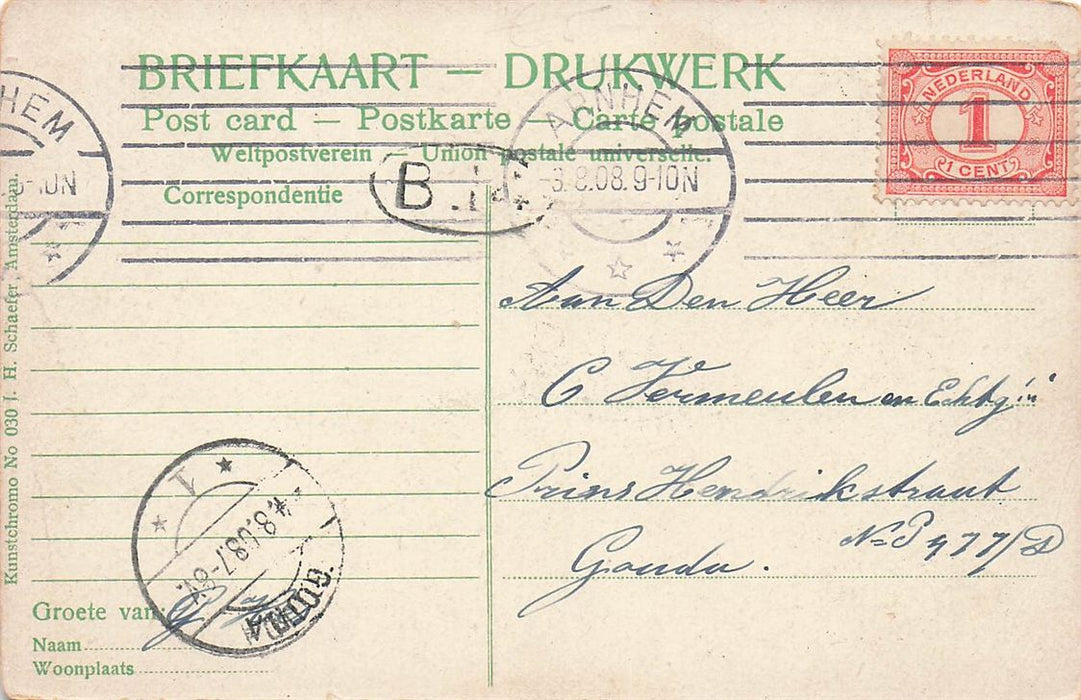 BRIEFKAART — DRUKWERK
Post card — Postkarte — Carte postale
Weltpostverein — Union postale universelle.
Correspondentie
NEDERLAND
1
1 CENT
ARNHEM
-3.8.08. 9-10N
HEM
-10N
B. 14
Aan Den Heer
C Vermeulen en Echtg
Prins Hendrikstraat
No P 477/D
Gouda.
1
4.8.08.7-8V.
GOUDA
Groete van
Naam
Woonplaats
Kunstchromo No 030 J. H. Schaefer, Amsterdam.